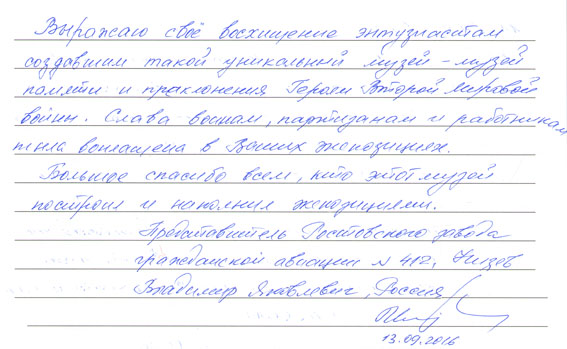 Выражаю своё восхищение энтузиастам
создавшим такой уникальный музей - музей
памяти и праклонения Героям Второй мировой
войны. Слава воинам, партизанам и работникам
тыла воплащена в Ваших экспозициях.
Большое спасибо всем, кто этот музей
построил и наполнил экспозициями.
Представитель Ростовского завода
гражданской авиации № 412,
Владимир Яковлевич, Россия
13.09.2016